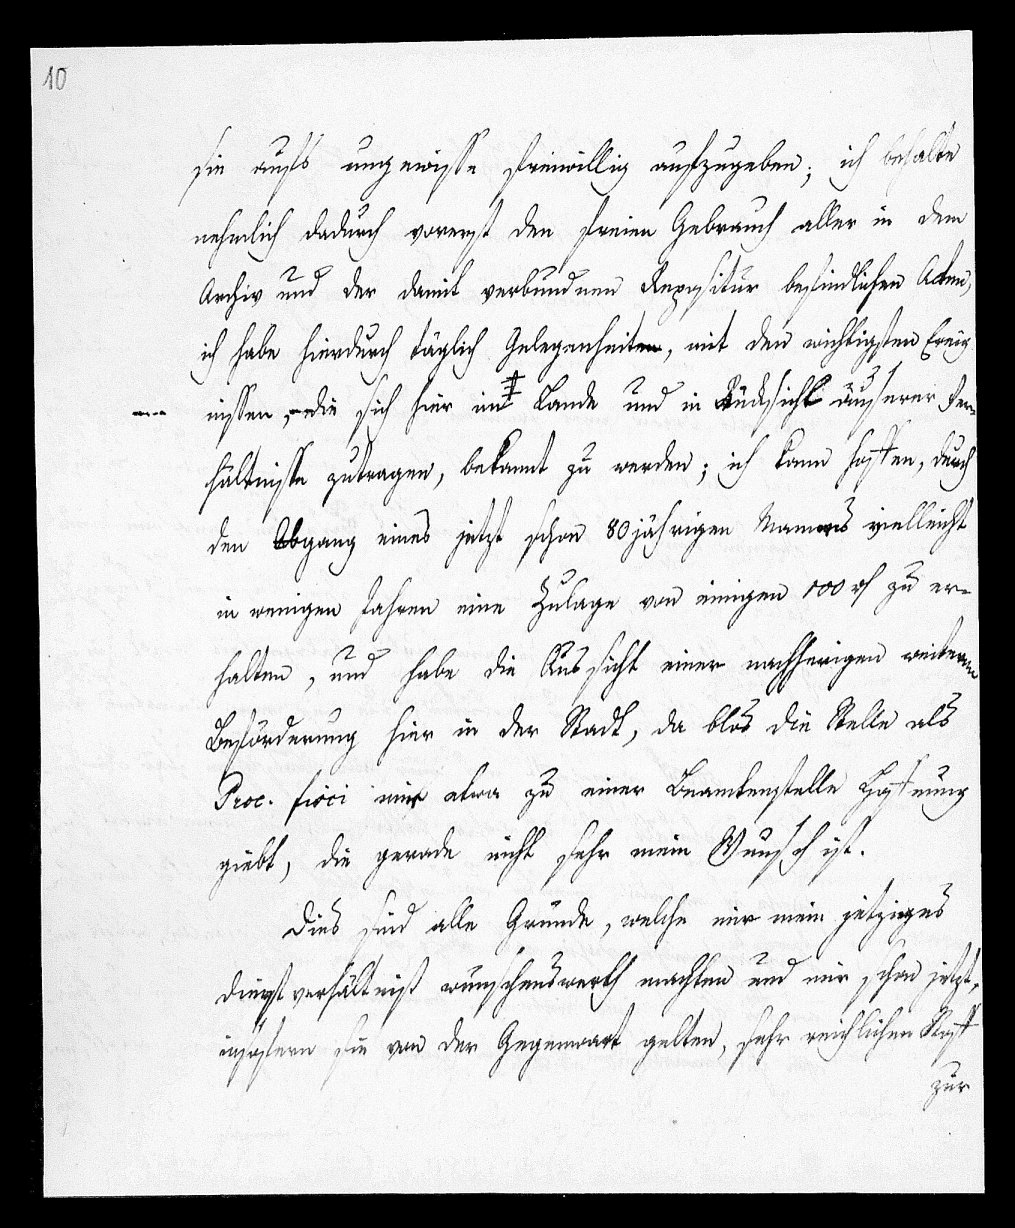 10
sie aufs ungewisse freiwillig aufzugeben; ich behalte
nehmlich dadurch vorerst den freien Gebrauch aller in dem
Archiv und der damit verbundnen Repositur befindlichen Acten,
ich habe hierdurch täglich Gelegenheiten, mit den wichtigsten Ereig
nissen, die sich hier im Lande und in Rücksicht äuserer Ver-
hältnisse zutragen, bekannt zu werden; ich kann hoffen, durch
den Abgang eines jetzt schon 80jährigen Mannes vielleicht
in wenigen Jahren eine Zulage von einigen 100 rh zu er-
halten, und habe die Aussicht einer nachherigen weitern
Beförderung hier in der Stadt, da blos die Stelle als
Proc. fisci mir etwa zu einer Beamtenstelle Hoffnung
giebt, die gerade nicht sehr mein Wunsch ist.
Dies sind alle Gründe, welche mir mein jetziges
Dienstverhältnist wunschenswerth machten und mir schon jetzt,
insofern sie von der Gegenwart gelten, sehr reichlichen Stoff
zur